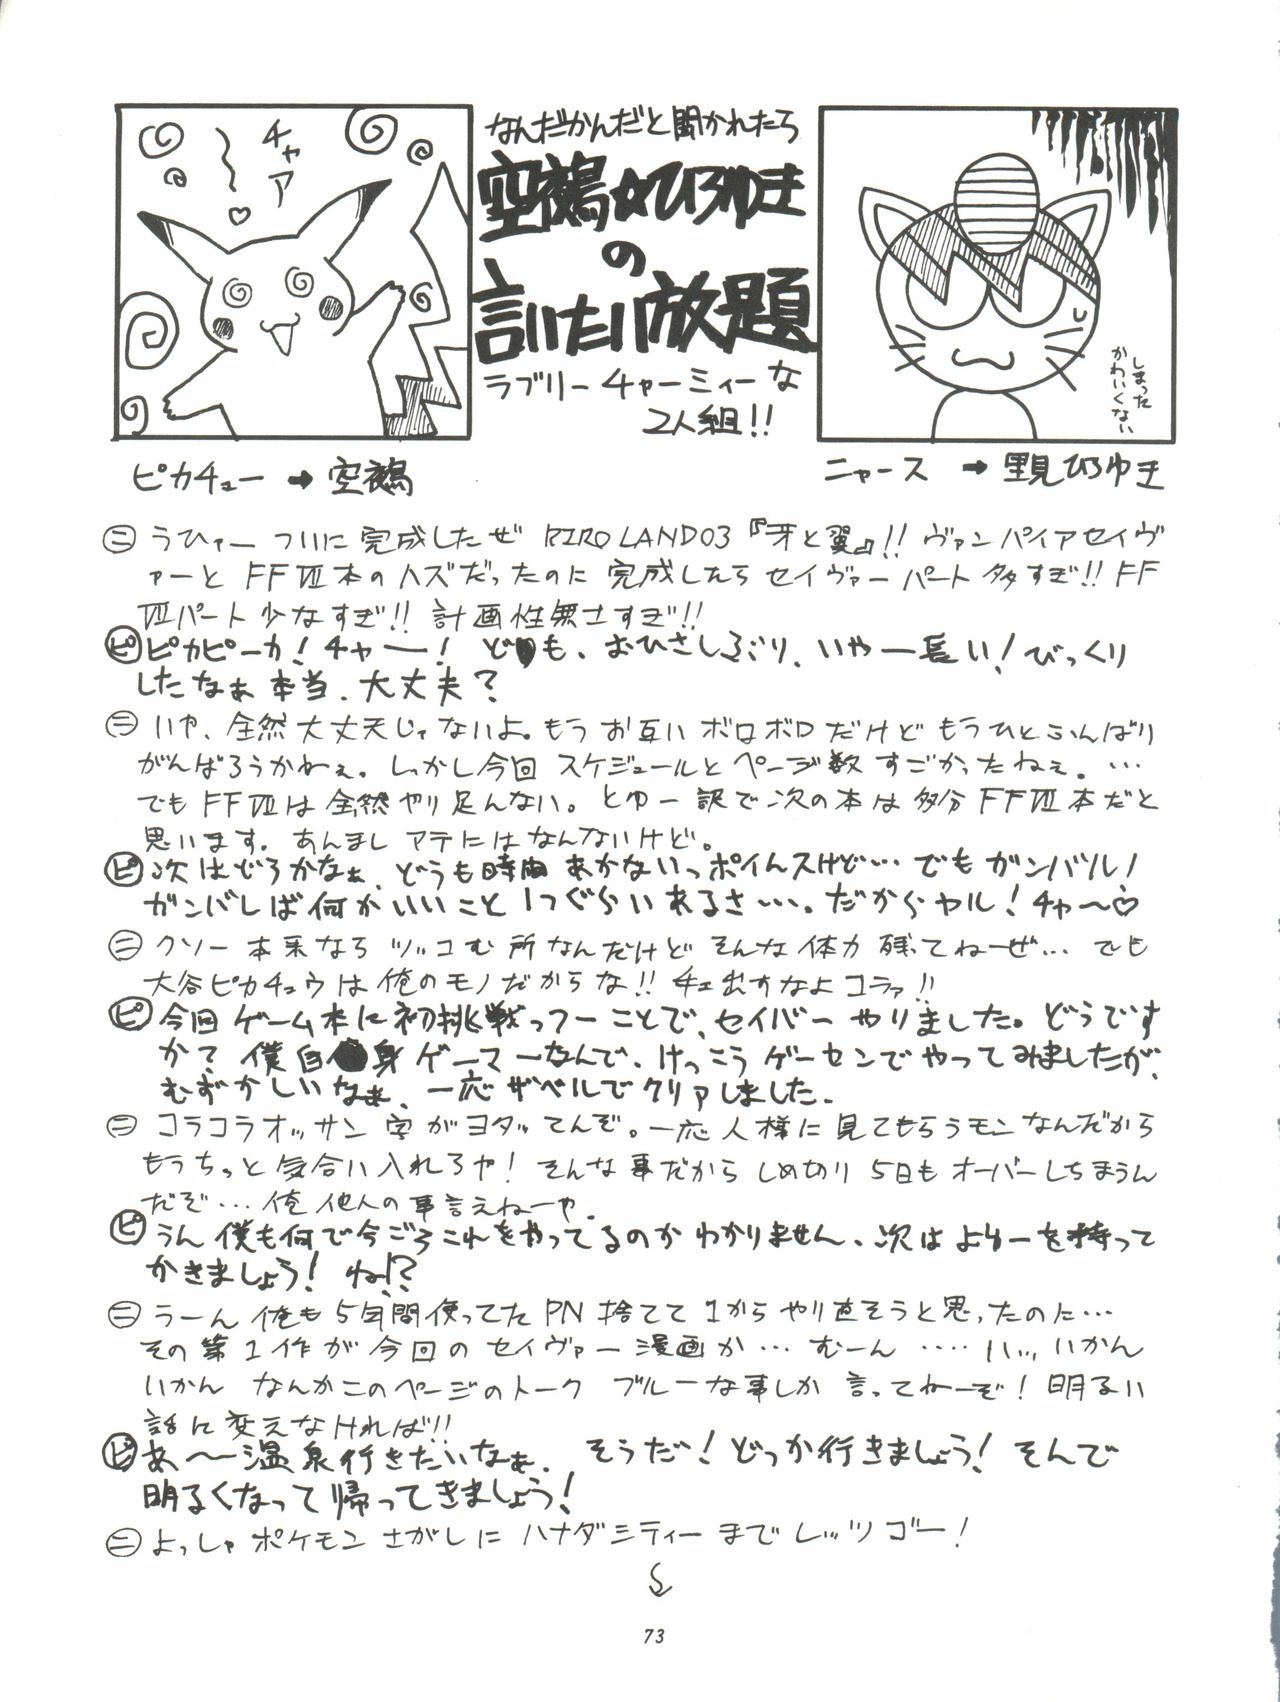 チャア〜♡
なんだかんだと聞かれたら
空鵺☆ひろゆき
の
言いたい放題
ラブリーチャーミィーな
2人組!!
しまった
かわいくない
ピカチュー→空鵺
ニャース→里見ひろゆき
㊁うひゃー ついに完成したぜ RIROLAND03『牙と翼』!! ヴァンパイアセイヴ
ァーとFFⅦ本のハズだったのに完成したらセイヴァーパート多すぎ!! FF
Ⅶパート少なすぎ!! 計画性無さすぎ!!
ピ ピカピーカ!チャー! ども、おひさしぶり、いやー長い!びっくり
したなぁ本当、大丈夫?
ニ いや、全然大丈夫じゃないよ。もうお互いボロボロだけどもうひとふんばり
がんばろうかねぇ。しっかし今回スケジュールとページ数すごかったねぇ。…
でもFFⅦは全然やり足んない。とゆー訳で次の本は多分FFⅦ本だと
思います。あんましアテにはなんないけど。
ピ 次はどうかなぁ、どうも時間あかないっポイんスけど…でもガンバツル!
ガンバレば何かいいこと1つぐらいあるさ…。だからヤル!チャ〜♡
ニ クソー本来ならツッコむ所なんだけどそんな体力残ってねーぜ…でも
大谷ピカチュウは俺のモノだからな!! チェ出すなよコラァ!!
ピ 今回ゲーム本に初挑戦っつーことで、セイバーやりました。どうです
か? 僕自身ゲーマーなんで、けっこうゲーセンでやってみましたが、
むずかしいなぁ、一応ザベルでクリアしました。
ニ コラコラオッサン字がヨタってんぞ。一応人様に見てもらうモンなんだから
もうちっと気合い入れろや! そんな事だからしめ切り5日もオーバーしちまうん
だぞ…俺他人の事言えねーや。
ピ うん僕も何で今ごろこれをやってるのかわかりません、次はよゆーを持って
かきましょう! ね!?
ニ うーん俺も5年間使ってたPN捨てて1からやり直そうと思ったのに…
その第1作が今回のセイヴァー漫画か…むーん……ハッ、いかん
いかんなんかこのページのトークブルーな事しか言ってねーぞ!明るい
話に変えなければ!!
ピ あ〜温泉行きたいなぁ、そうだ!どっか行きましょう!そんで
明るくなって帰ってきましょう!
ニ よっしゃポケモンさがしにハナダシティーまでレッツゴー!
73